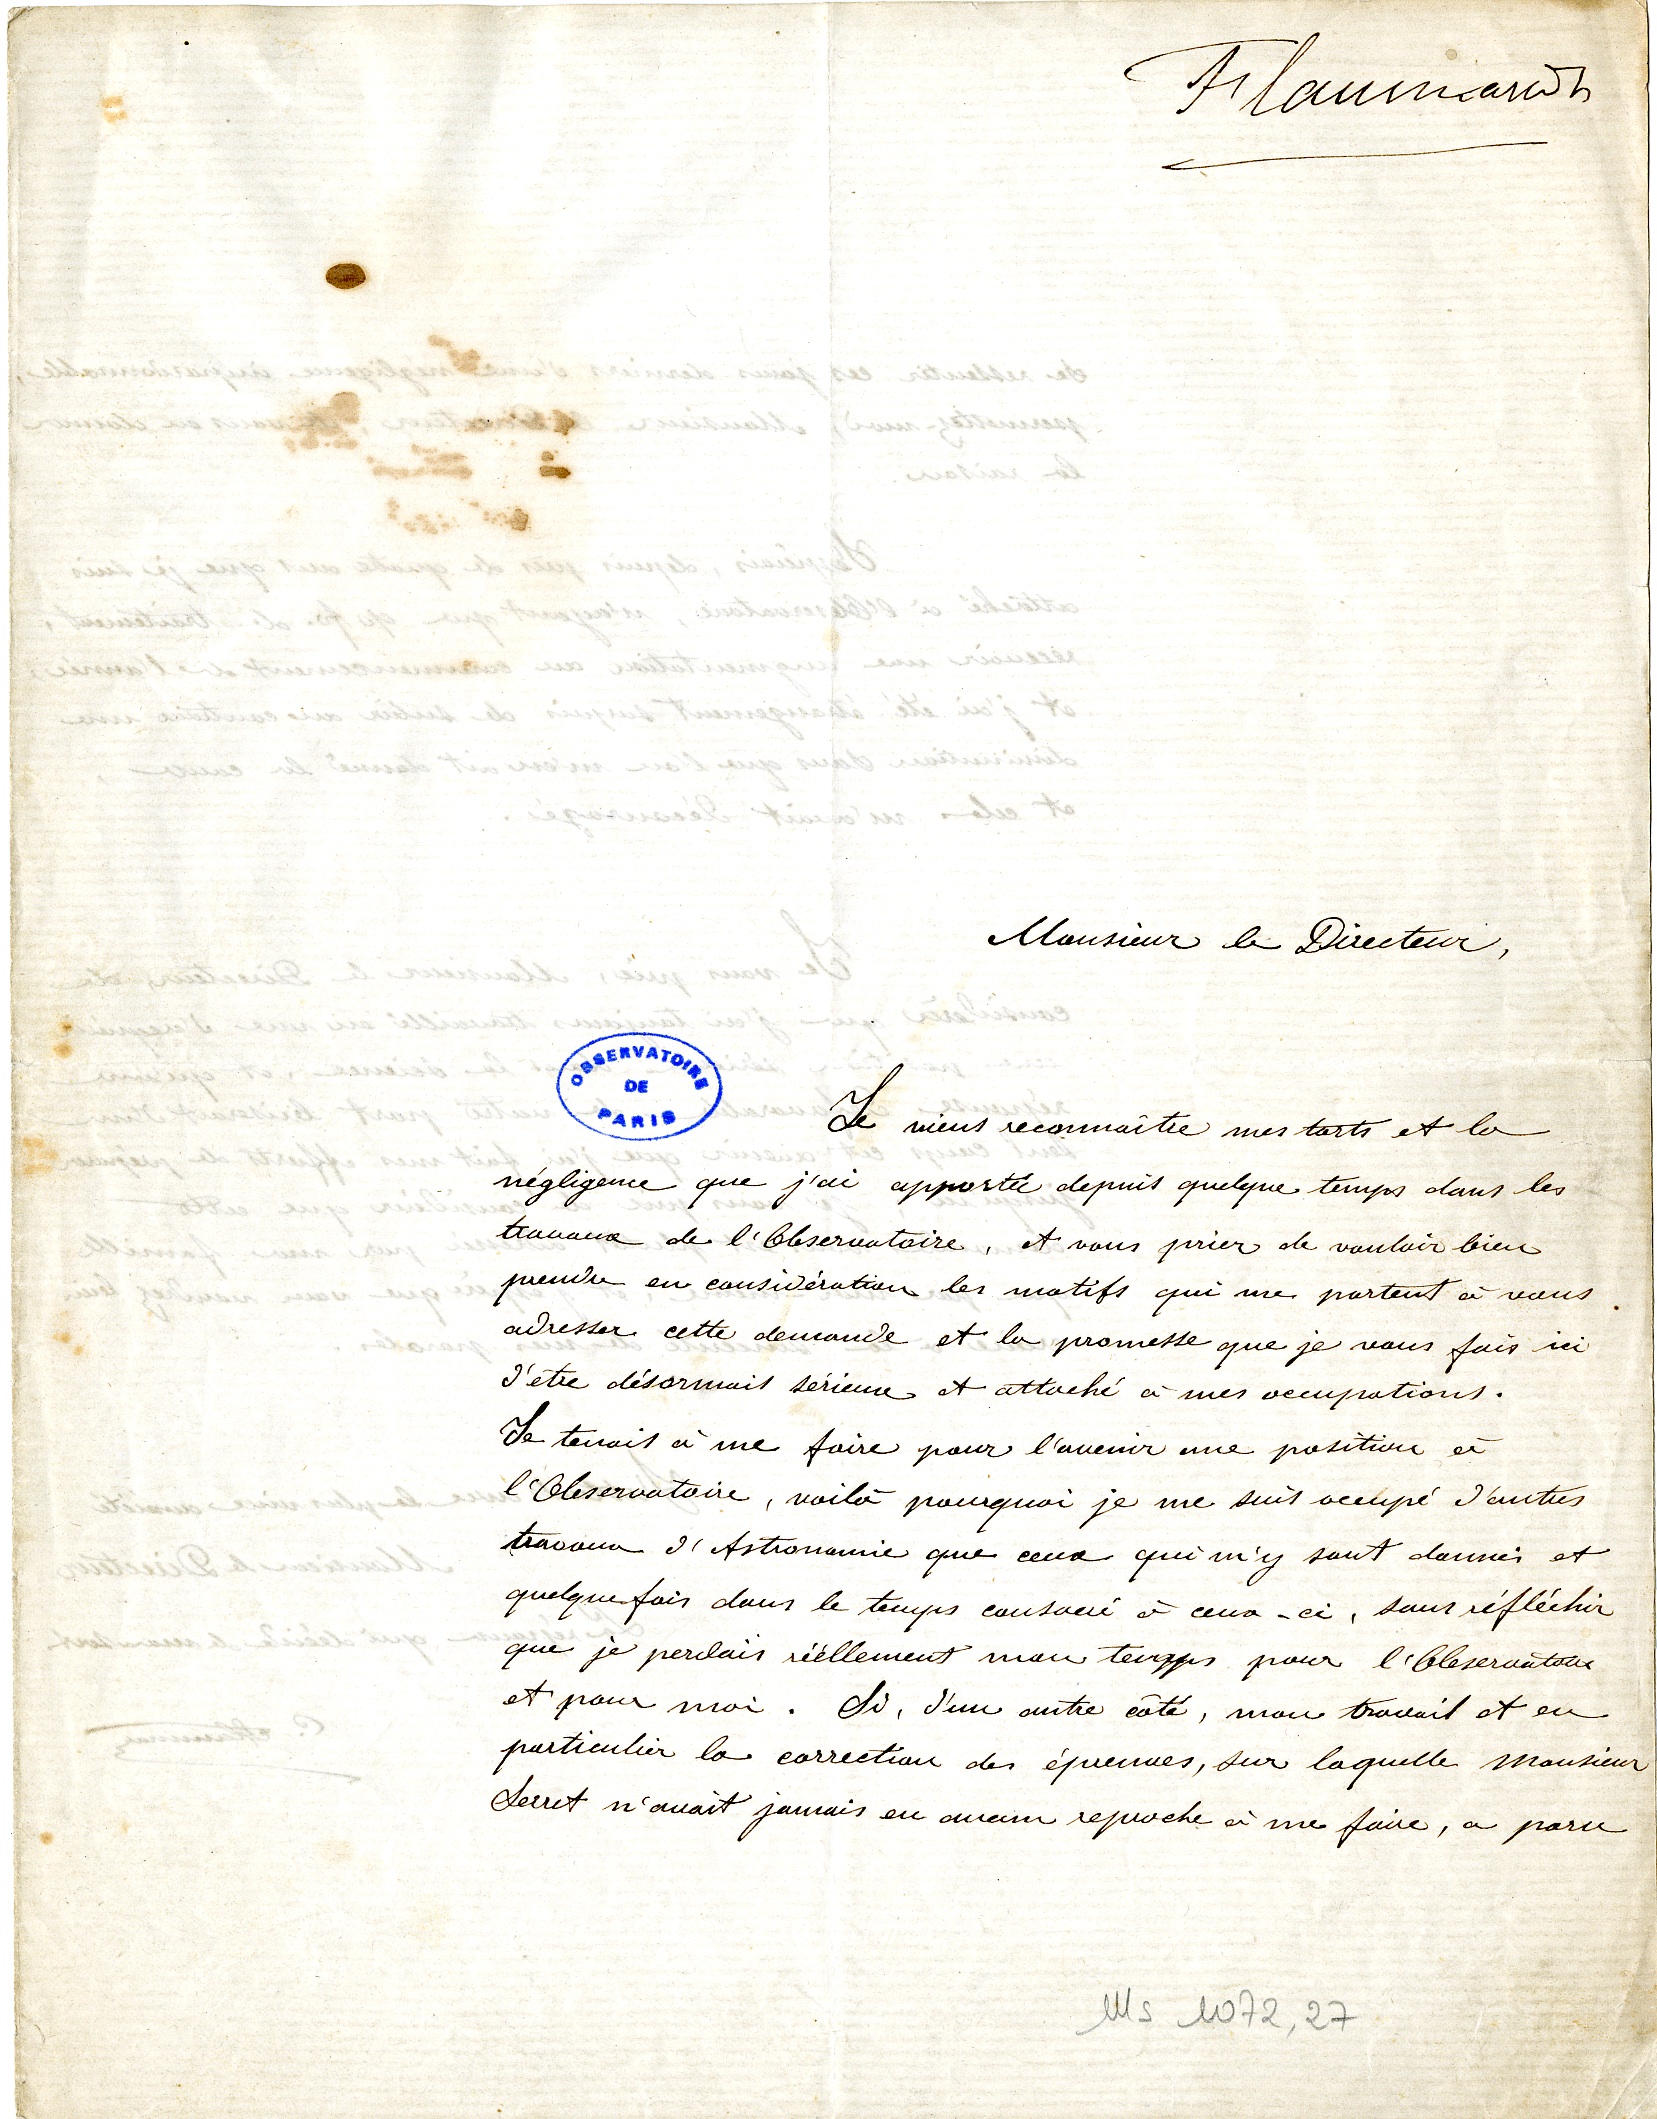 Flammarion
Monsieur le Directeur,
OBSERVATOIRE
DE
PARIS
Je viens reconnaître mes torts et la
négligence que j'ai apportée depuis quelque temps dans les
travaux de l'Observatoire, et vous prier de vouloir bien
prendre en considération les motifs qui me portent à vous
adresser cette demande et la promesse que je vous fais ici
d'être désormais sérieux et attaché à mes occupations.
Je tenais à me faire pour l'avenir une position à
l'Observatoire, voilà pourquoi je me suis occupé d'autres
travaux d'Astronomie que ceux qui m'y sont donnés et
quelquefois dans le temps consacré à ceux-ci, sans réfléchir
que je perdais réellement mon temps pour l'Observatoire
et pour moi. Si, d'un autre côté, mon travail et en
particulier la correction des épreuves, sur laquelle Monsieur
Serret n'avait jamais eu aucun reproche à me faire, a paru
Ms 1072,27